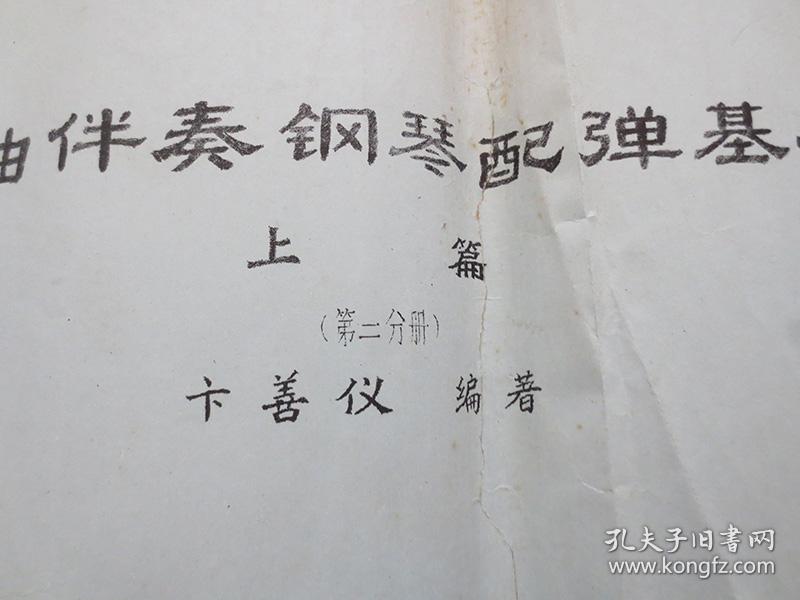 曲伴奏钢琴配弹基
上 篇
（第二分册）
卞善仪 编著
孔夫子旧书网
www.kongfz.com